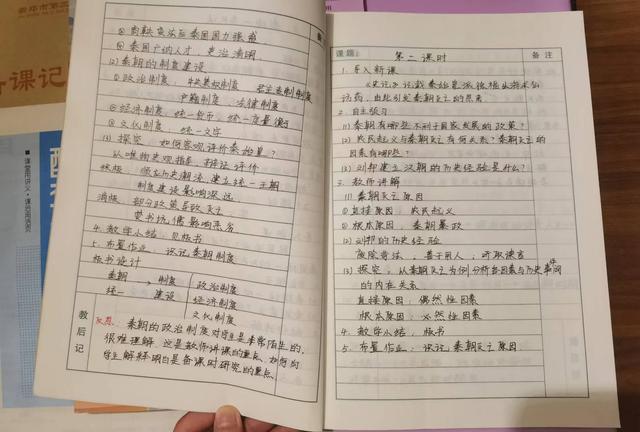 备课记
② 商鞅变法至秦国国力强盛
③ 秦国广纳人才，吏治清明
(2) 秦朝的制度建设
① 政治制度：中央集权制度 君主专制制度
户籍制度、法律制度
② 经济制度：统一货币、统一度量衡
③ 文化制度：统一文字
(3) 探究：如何客观评价秦始皇？
从唯物史观指导，辩证评价
积极：顺应历史潮流，建立统一王朝
制度建设影响深远
消极：部分政策导致灭亡
焚书坑儒影响恶劣
4. 教学小结：见板书
5. 布置作业：识记秦朝制度
板书设计
秦朝 制度 政治制度
统一 建设 经济制度
文化制度
教后记
反思：秦朝的政治制度对学生是非常陌生的，
很难理解。这是教师讲课的重点，如何向
学生解释明白是备课时研究的重点
课题： 第二课时 备注
1. 导入新课
《史记》记载秦始皇派徐福出海求仙
访药，由此引发秦朝灭亡的思考
2. 自主预习
(1) 秦朝有哪些不利于国家发展的政策？
(2) 农民起义与秦朝灭亡有何关系？秦朝灭亡的
因素有哪些？
(3) 刘邦建立汉朝的历史经验是什么？
3. 教师讲解
(1) 秦朝灭亡原因
① 直接原因：农民起义
② 根本原因：秦朝暴政
(2) 刘邦的历史经验
废除苛法，善于用人，听取谏言
(3) 探究：从秦朝灭亡为例分析各因素与历史事件间
的内在关系
直接原因：偶然性因素
根本原因：必然性因素
4. 教学小结：板书
5. 布置作业：识记秦朝灭亡原因